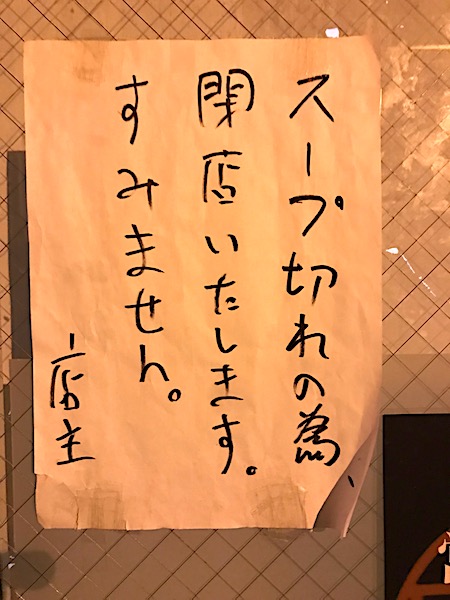 スープ切れの為、
閉店いたします。
すみません。
店主